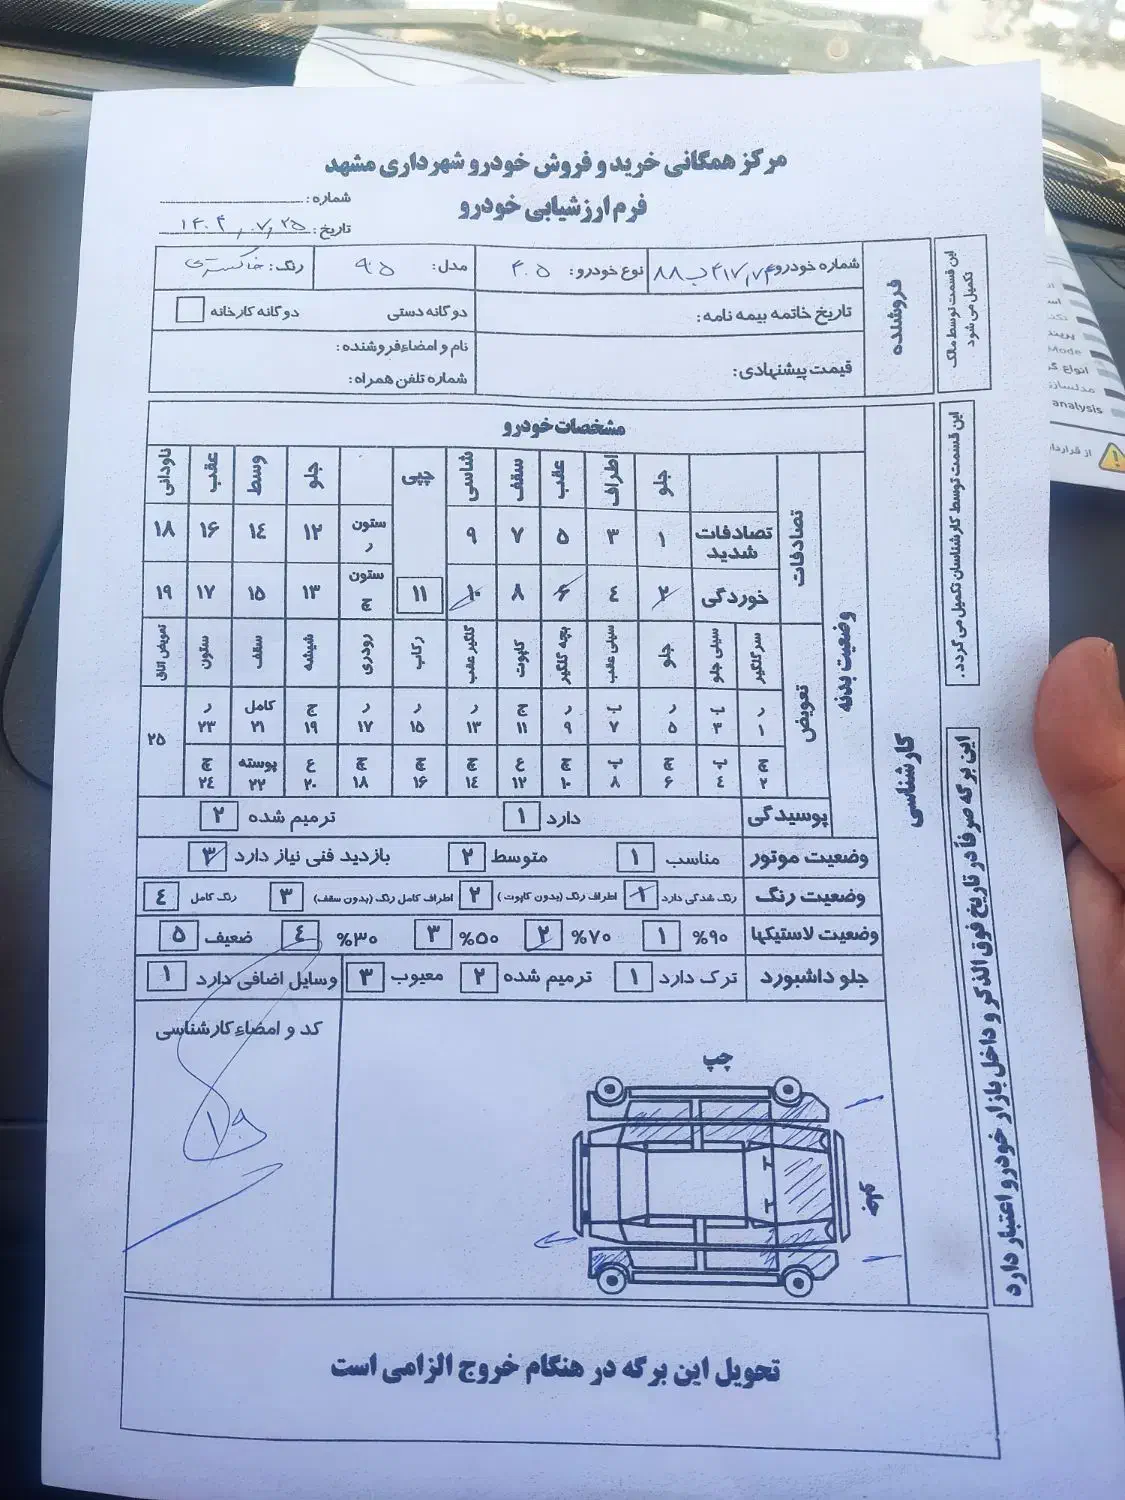 مرکز همگانی خرید و فروش خودرو شهرداری مشهد
فرم ارزشیابی خودرو
شماره :
تاریخ : ۱۴۰۴,۰۷,۲۵
این قسمت توسط مالک تکمیل می شود
فروشنده
شماره خودرو: ۷۴
نوع خودرو: ۴۰۵
مدل: ۹۰۵
رنگ: خاکستری
تاریخ خاتمه بیمه نامه:
دوگانه دستی
دوگانه کارخانه
قیمت پیشنهادی:
نام و امضاءفروشنده :
شماره تلفن همراه:
این قسمت توسط کارشناسان تکمیل می گردد.
کارشناسی
مشخصات خودرو
وضعیت بدنه
تصادفات
جلو اطراف عقب سقف شاسی چپی جلو وسط عقب ناودانی
تصادفات شدید ۱ ۳ ۵ ۷ ۹ ستون ر ۱۲ ۱۴ ۱۶ ۱۸
خوردگی ۲ ٤ ۶ ۸ ۱۰ ۱۱ ستون چ ۱۳ ۱۵ ۱۷ ۱۹
تعویض
سرگلگیر سینی جلو جلو سینی عقب بچه گلگیر کاپوت گلگیر عقب رکاب رودری شیشه سقف ستون تعویض اتاق
ر ۱ ۳ ر ۵ ۷ ر ۹ ج ۱۱ ر ۱۳ ر ۱۵ ر ۱۷ ج ۱۹ کامل ۲۱ ر ۲۳ ۲۵
چ ۲ ٤ چ ۶ ۸ چ ۱۰ ع ۱۲ چ ۱٤ چ ۱۶ چ ۱۸ ع ۲۰ پوسته ۲۲ چ ۲٤
پوسیدگی دارد ۱ ترمیم شده ۲
وضعیت موتور مناسب ۱ متوسط ۲ بازدید فنی نیاز دارد ۳
وضعیت رنگ رنگ شدگی دارد ۱ اطراف رنگ (بدون کاپوت) ۲ اطراف کامل رنگ (بدون سقف) ۳ رنگ کامل ٤
وضعیت لاستیکها ۹۰% ۱ ۷۰% ۲ ۵۰% ۳ ۳۰% ٤ ضعیف ۵
جلو داشبورد ترک دارد ۱ ترمیم شده ۲ معیوب ۳ وسایل اضافی دارد ۱
کد و امضاءکارشناسی
چپ
این برگه صرفاً در تاریخ فوق الذکر و داخل بازار خودرو اعتبار دارد
تحویل این برگه در هنگام خروج الزامی است
Mode
انواع
analysis
از قرارداد